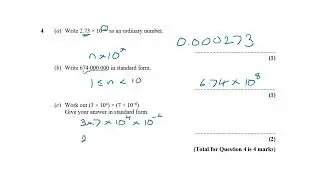 4 (a) Write 2.73 × 10 as an ordinary number.
0.000273
n × 10ˣ
(1)
(b) Write 674 000 000 in standard form.
1 ≤ n < 10
674 × 10⁸
(1)
(c) Work out (3 × 10⁴) × (7 × 10⁻⁶)
Give your answer in standard form.
3×7 × 10⁴ × 10⁻⁶
2
(2)
(Total for Question 4 is 4 marks)